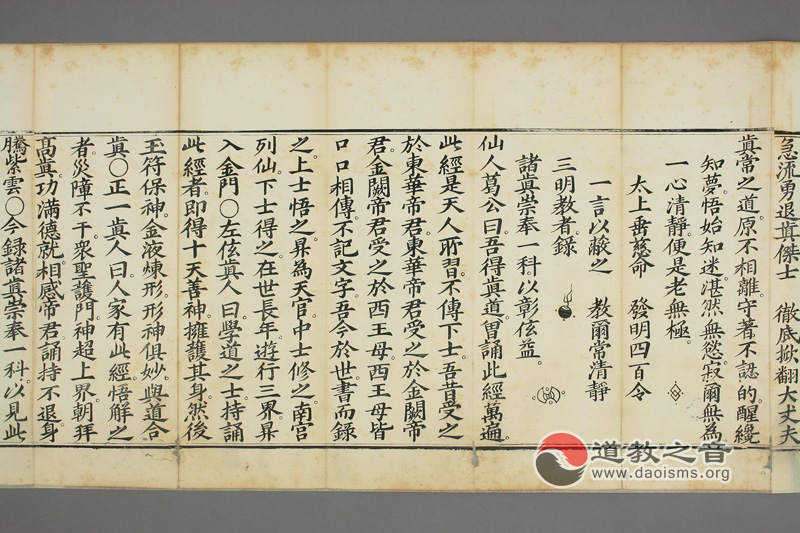 急流勇退真傑士　徹底掀翻大丈夫
真常之道。原不相離。守著不認。的醒纔
知夢悟始知迷。湛然無慾。寂爾無為
一心清靜。便是老無極。
太上垂慈命　發明四百令
一言以蔽之　教爾常清靜
三明教者錄
諸眞崇奉一科。以彰佉益。
仙人葛公曰。吾得眞道。曽誦此經萬遍。
此經是天人所習。不傳下士。吾昔受之
於東華帝君。東華帝君受之於金闕帝
君。金闕帝君受之於西王母。西王母皆
口口相傳。不記文字。吾今於世。書而錄
之。上士悟之。昇為天官。中士修之。南宮
列仙。下士得之。在世長年。遊行三界。昇
入金門〇左佉眞人曰。學道之士。持誦
此經者。即得十天善神。擁護其身。然後
玉符保神。金液煉形。形神俱妙。與道合
眞〇正一眞人曰。人家有此經。悟解之
者。災障不干。衆聖護門。神超上界。朝拜
高眞。功滿德就。相感帝君。誦持不退。身
騰紫雲〇今録諸眞崇奉一科。以見此
道教之音
www.daoisms.org